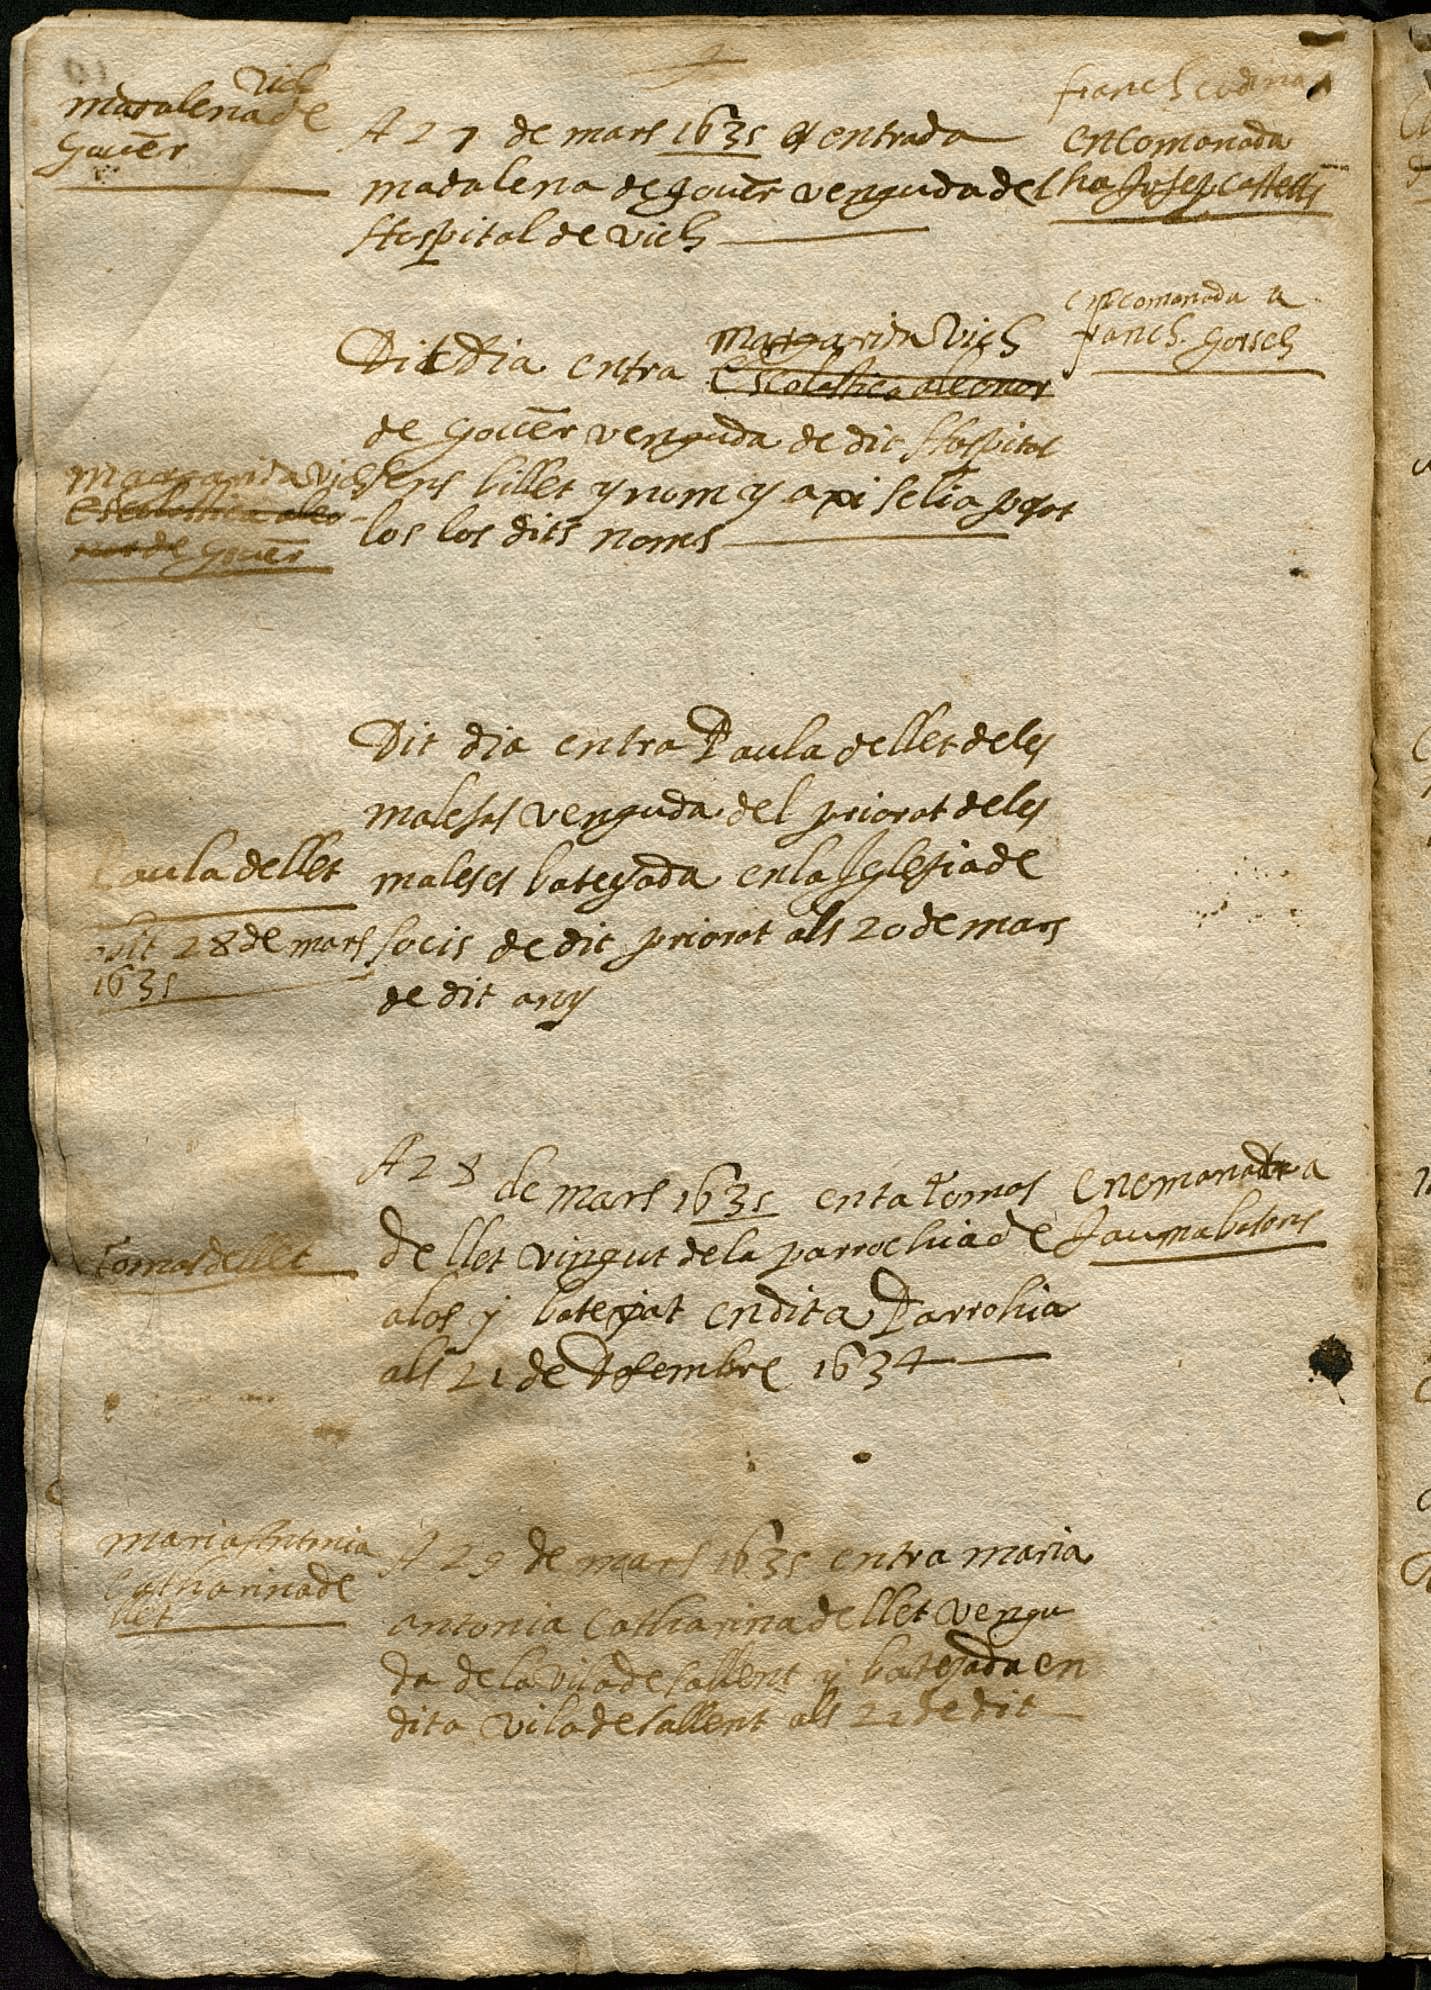 Vich
Madalena de
Govēr
A 27 de mars 1635 es entrada
madalena de govēr venguda del
Hospital de vich
franch codina
encomanada
ha Josep Castells
Dit dia entra margarida Vich
Escolastica aleonor
de Govēr venguda de dit Hospital
sens billet y nom y axi seli a posat
los los dits noms
encomanada a
franch. Gorsch
Margarida Vich
Escolastica aleo-
nor de Govēr
Dit dia entra Paula dellet deles
malesas venguda del priorat deles
maleses bategada enla Iglesia de
socis de dit priorat als 20 de mars
de dit any
Paula dellet
28 de mars
1635
A 28 de mars 1635 enta tomas
dellet vingut dela parrochia de
alos y batejat en dita Parrohia
als 21 de Desembre 1634
enemanada a
Jauma batons
Tomas dellet
Maria Antonia
Catharina de
llet
A 29 de mars 1635 entra maria
antonia Catharina dellet vengu
da de la vila de sallent y batejada en
dita vila de sallent als 22 de dit